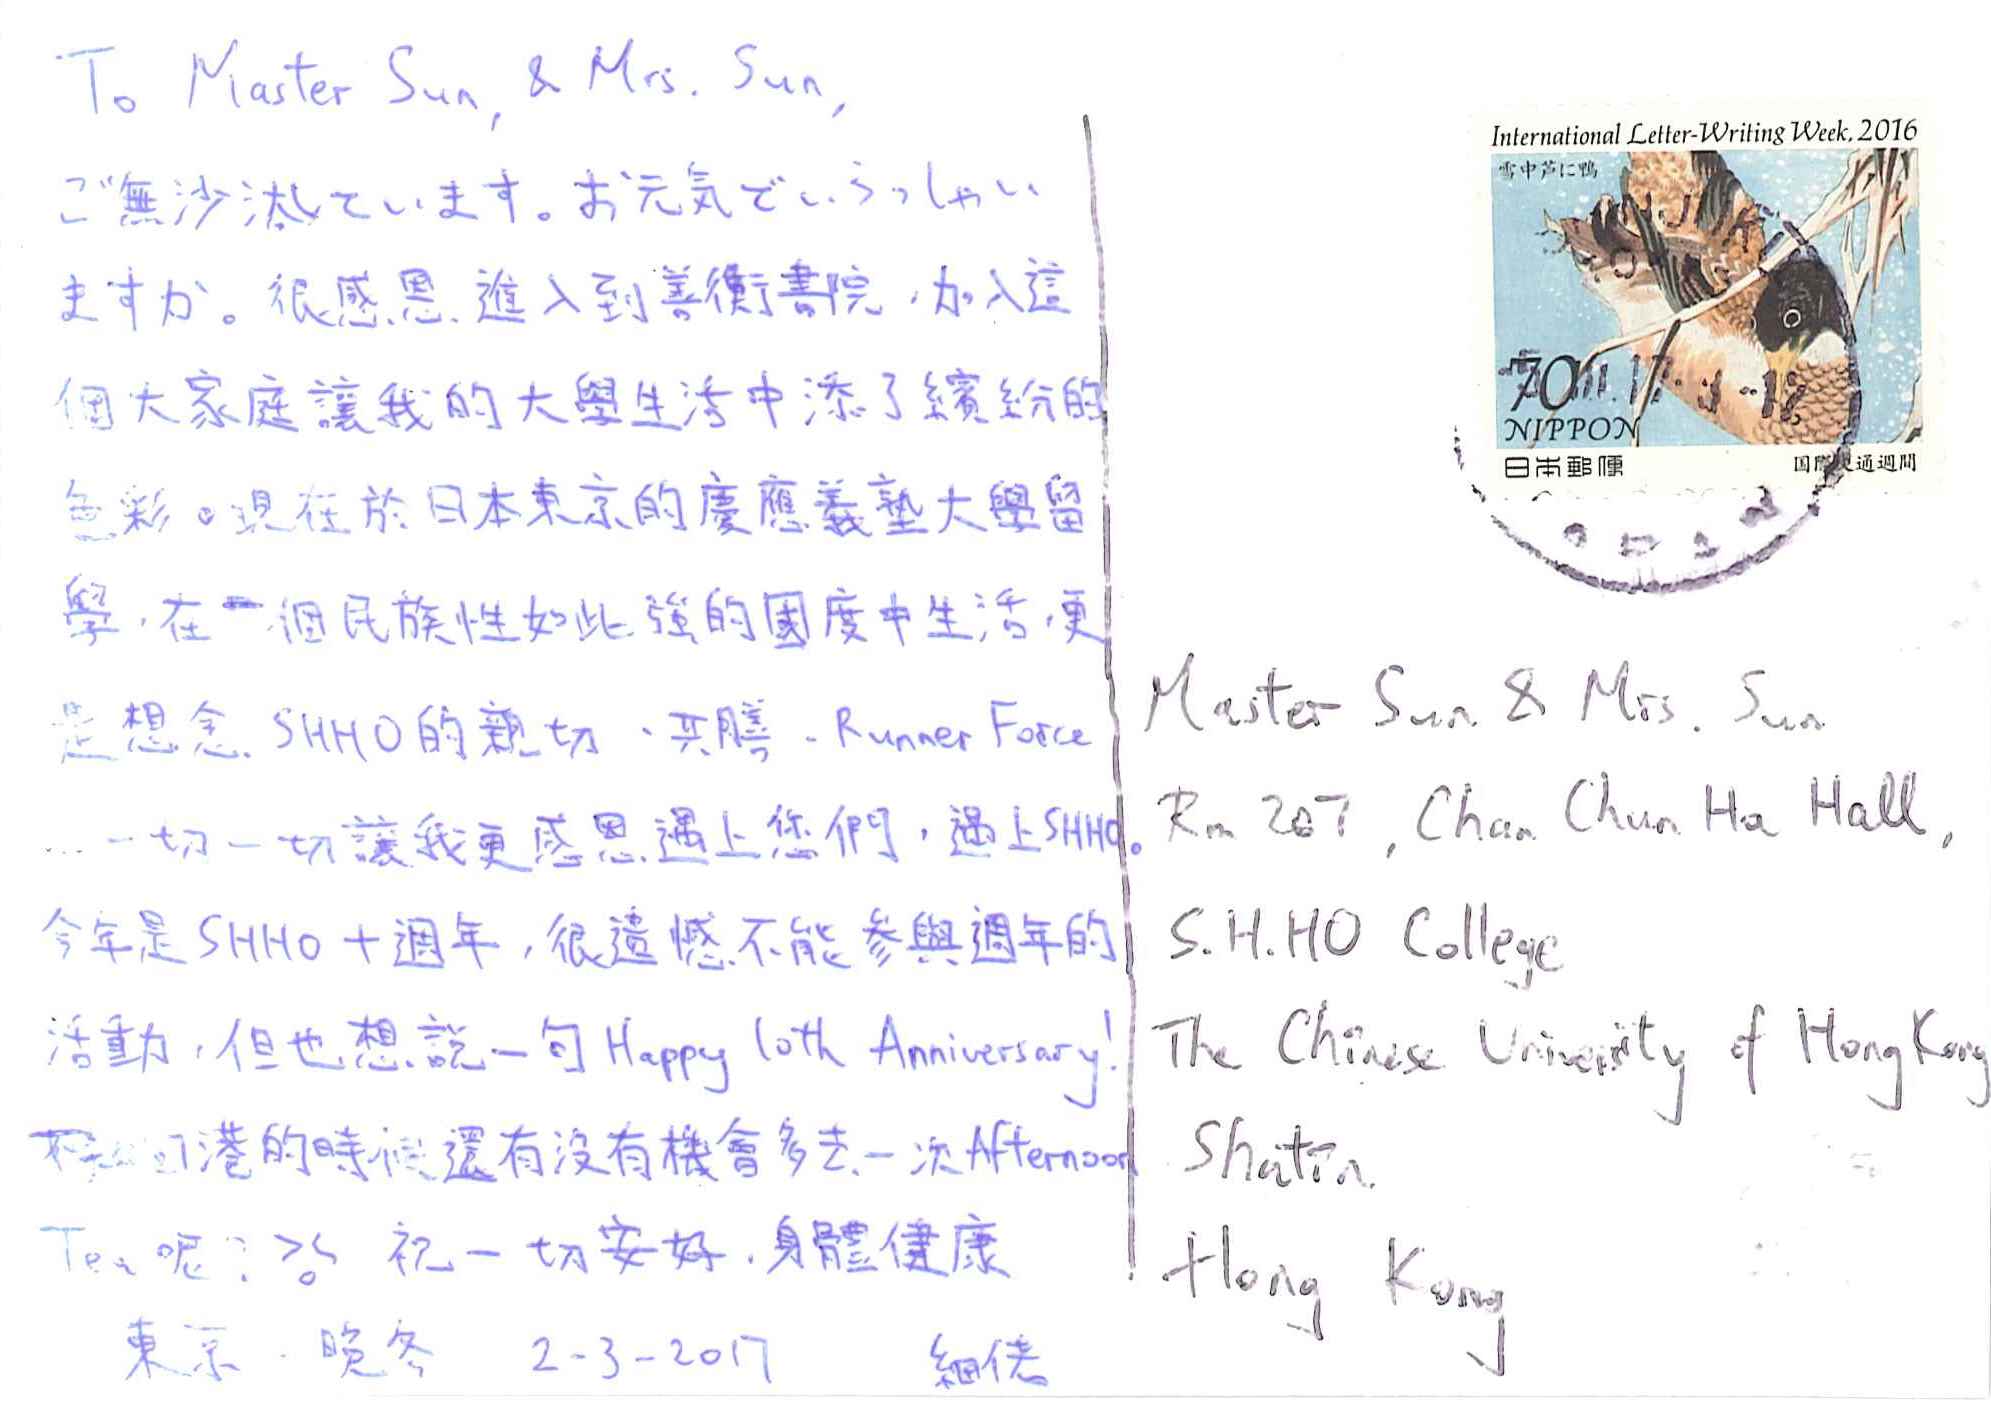 To Master Sun, & Mrs. Sun,
ご無沙汰しています。お元気でいらっしゃい
ますか。很感恩進入到善衡書院,加入這
個大家庭讓我的大學生活中添了繽紛的
色彩。現在於日本東京的慶應義塾大學留
學,在一個民族性如此強的國度中生活,更
是想念SHHO的親切、共膳、Runner Force
...一切一切讓我更感恩遇上您們,遇上SHHO。
今年是SHHO十週年,很遺憾不能參與週年的
活動,但也想說一句Happy 10th Anniversary!
不知回港的時候還有沒有機會多去一次Afternoon
Tea呢? 祝一切安好,身體健康
東京·晚冬 2-3-2017 細佬
International Letter-Writing Week, 2016
雪中芦に鴨
70
NIPPON
日本郵便
国際文通週間
Master Sun & Mrs. Sun
Rm 207, Chan Chun Ha Hall,
S.H.HO College
The Chinese University of Hong Kong
Shatin
Hong Kong